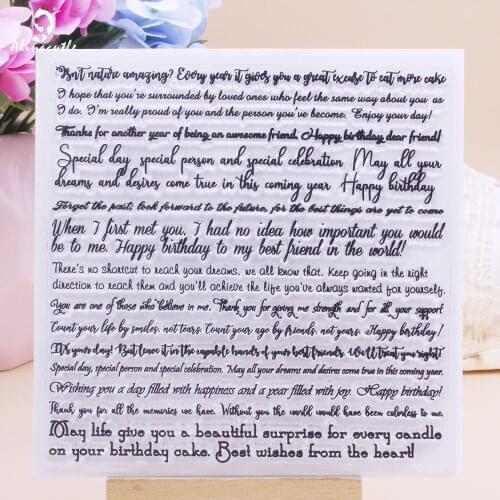 Alinacutle
Isn't nature amazing? Every year it gives you a great excuse to eat more cake
I hope that you're surrounded by loved ones who feel the same way about you as
I do. I'm really proud of you and the person you've become. Enjoy your day!
Thanks for another year of being an awesome friend. Happy birthday dear friend!
Special day, special person and special celebration. May all your
dreams and desires come true in this coming year. Happy birthday
Forget the past; look forward to the future, for the best things are yet to come
When I first met you, I had no idea how important you would
be to me. Happy birthday to my best friend in the world!
There's no shortcut to reach your dreams, we all know that. Keep going in the right
direction to reach them and you'll achieve the life you've always wanted for yourself.
You are one of those who believe in me. Thank you for giving me strength and for all your support
Count your life by smiles, not tears. Count your age by friends, not years. Happy birthday!
It's your day! But leave it in the capable hands of your best friends. We'll treat you right!
Special day, special person and special celebration. May all your dreams and desires come true in this coming year.
Wishing you a day filled with happiness and a year filled with joy. Happy birthday!
Thank you for all the memories we have. Without you the world would have been colorless to me.
May life give you a beautiful surprise for every candle
on your birthday cake. Best wishes from the heart!